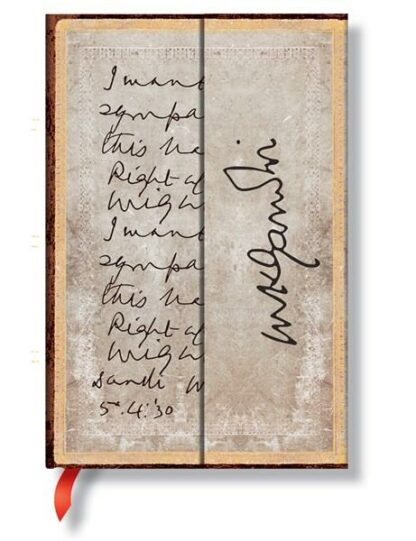 I want
sympa
this ba
Right ag
Might
I want
sympa
this ba
Right ag
Might
Sandi M
5.4.'30
MKGandhi